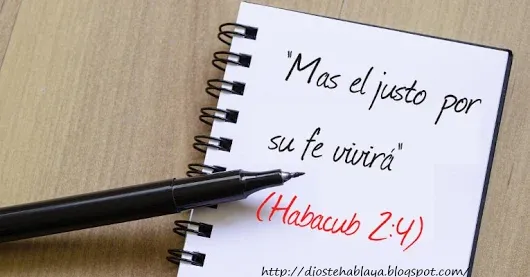 "Mas el justo por
su fe vivirá"
(Habacub 2:4)
http://diostehablaya.blogspot.com/